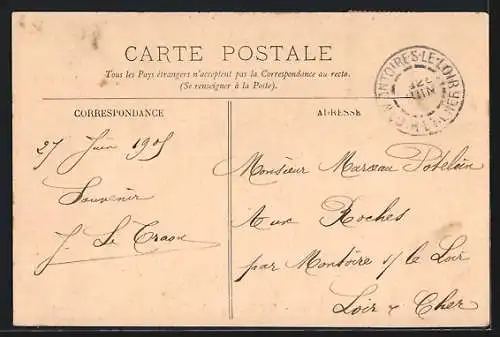 CARTE POSTALE
Tous les Pays étrangers n'acceptent pas la Correspondance au recto.
(Se renseigner à la Poste).
CORRESPONDANCE
27 Juin 1905
Souvenir
J. Le Craon
ADRESSE
Monsieur Marceau Potelein
Aux Roches
par Montoire s/ le Loir
Loir & Cher
LE-LOIR
JUIN